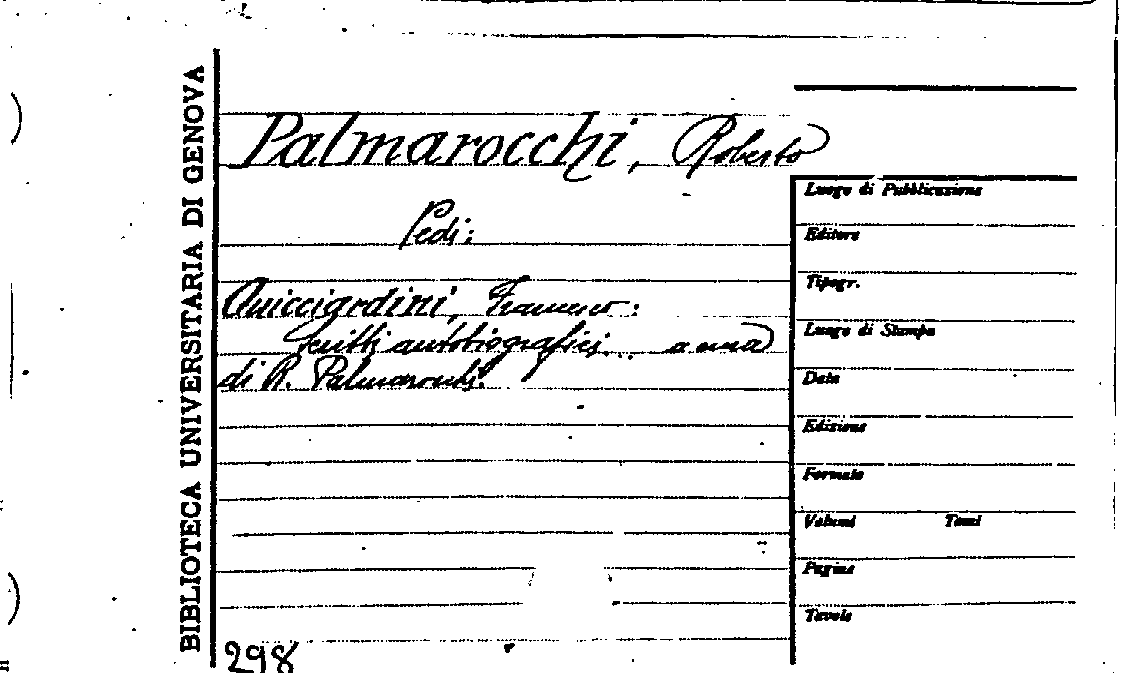 BIBLIOTECA UNIVERSITARIA DI GENOVA
Palmarocchi, Roberto
Vedi:
Guicciardini, Francesco:
Scritti autobiografici... a cura
di R. Palmarocchi.
298
Luogo di Pubblicazione
Editore
Tipogr.
Luogo di Stampa
Data
Edizione
Formato
Volumi Tomi
Pagine
Tavole